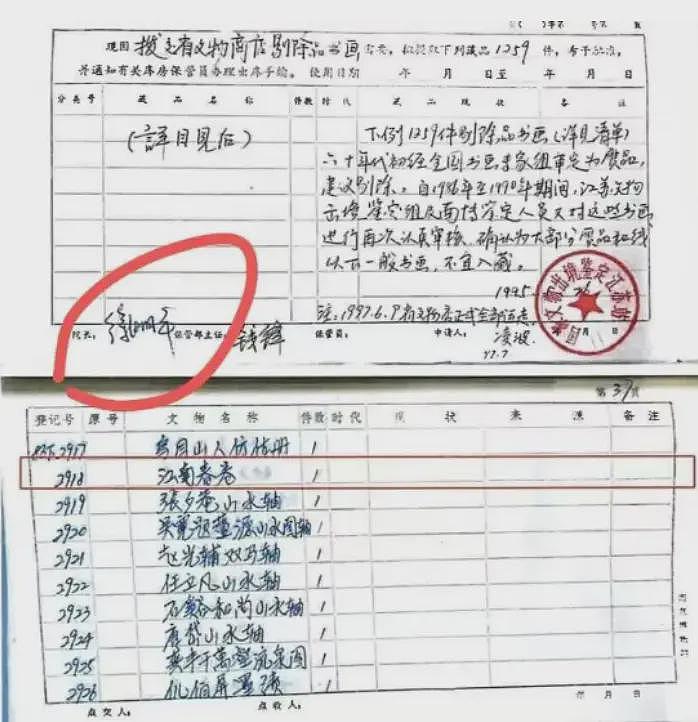 现因 拨交省文物商店剔除品书画 需要,拟提取下列藏品1259件,希予批准,
并通知有关库房保管员办理出库手续。使用日期 年 月 日至 年 月 日
分类号 藏品名称 件数 时代 藏品现状 备注
(詳目见后)
下例1259件剔除品书画(详见清单)
六十年代初经全国书画专家组审定为废品,
建议剔除。自1986年至1990年期间,江苏文物
出境鉴定组及南博鉴定人员又对这些书画
进行再次认真审核、确认为大部分废品和线
以下一般书画,不宜入藏。
1995
注:1997.6.9
院长: 徐湖平 保管部主任: 钱锋 保管员: 申请人: 凌波
97.7
文物出境鉴定江苏
第 37 页
登记号 原号 文物名称 件数 时代 现状 来源 备注
2917 乌目山人仿古册 1
2918 江南春卷 1
2919 張夕庵山水轴 1
2920 吴宽题 山水图轴 1
2921 赵光辅双马轴 1
2922 任立凡山水轴 1
2923 石谿和尚山水轴 1
2924 唐岱山水轴 1
2925 流泉图 1
2926 仇伯屏 1
点交人: 点收人: 年 月 日